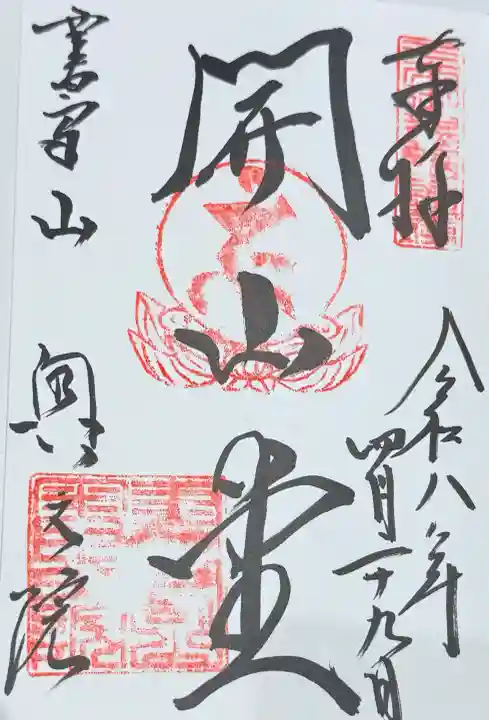 奉拝
令和八年
四月二十九日
開山堂
書写山
奥之院